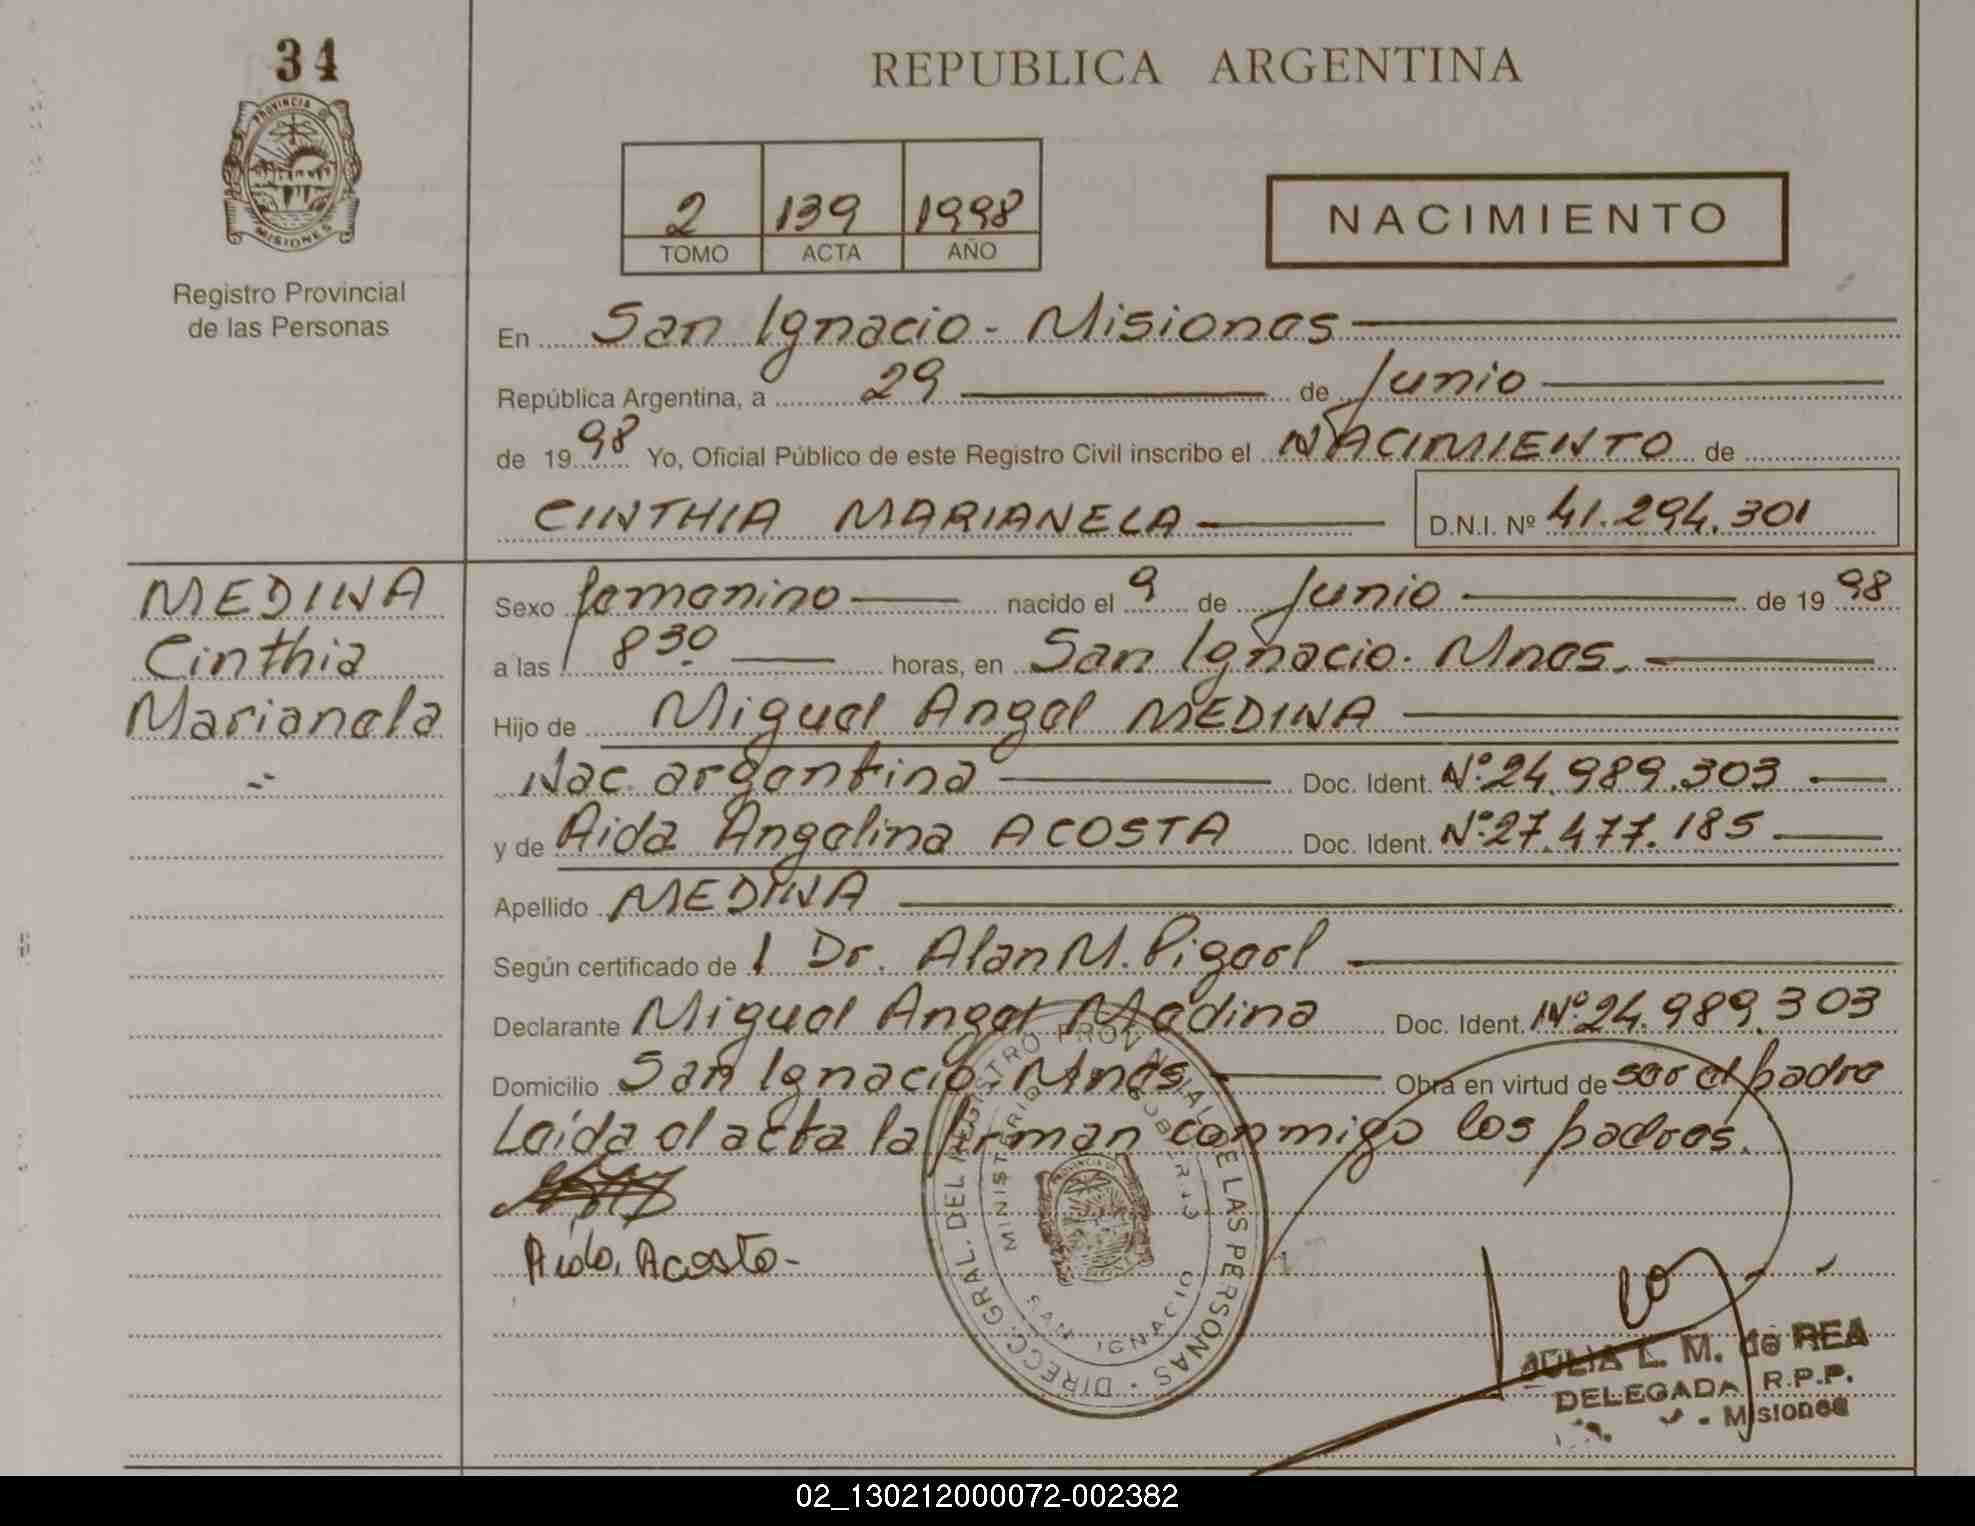 34
REPUBLICA ARGENTINA
PROVINCIA DE
MISIONES
Registro Provincial
de las Personas
2 139 1998
TOMO ACTA AÑO
NACIMIENTO
En San Ignacio - Misiones
República Argentina, a 29 de Junio
de 1998 Yo, Oficial Público de este Registro Civil inscribo el NACIMIENTO de
CINTHIA MARIANELA D.N.I. Nº 41.294.301
MEDINA
Cinthia
Marianela
Sexo femenino nacido el 9 de Junio de 1998
a las 8 30 horas, en San Ignacio. Mnes.
Hijo de Miguel Angel MEDINA
Nac. argentina Doc. Ident. Nº 24.989.303
y de Aida Angelina ACOSTA Doc. Ident. Nº 27.477.185
Apellido MEDINA
Según certificado de l Dr. Alan M.
Declarante Miguel Angel Medina Doc. Ident. Nº 24.989.303
Domicilio San Ignacio. Mnes Obra en virtud de ser el padre
Leida el acta la firman conmigo los padres.
Aida Acosta -
DIRECC. GRAL. DEL REGISTRO PROVINCIAL DE LAS PERSONAS
MINISTERIO DE GOBIERNO
SAN IGNACIO
JULIA L. M. de REA
DELEGADA R.P.P.
- Misiones
02_130212000072-002382